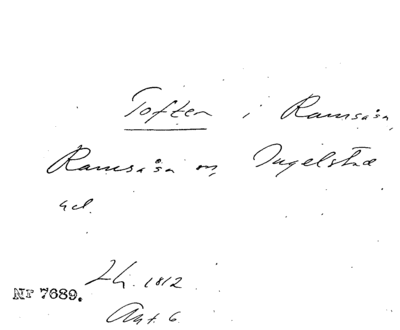 Toften i Ramsåsa,
Ramsåsa sn, Ingelstad
hd.
Lh. 1812
Nr 7689.
Akt. 6